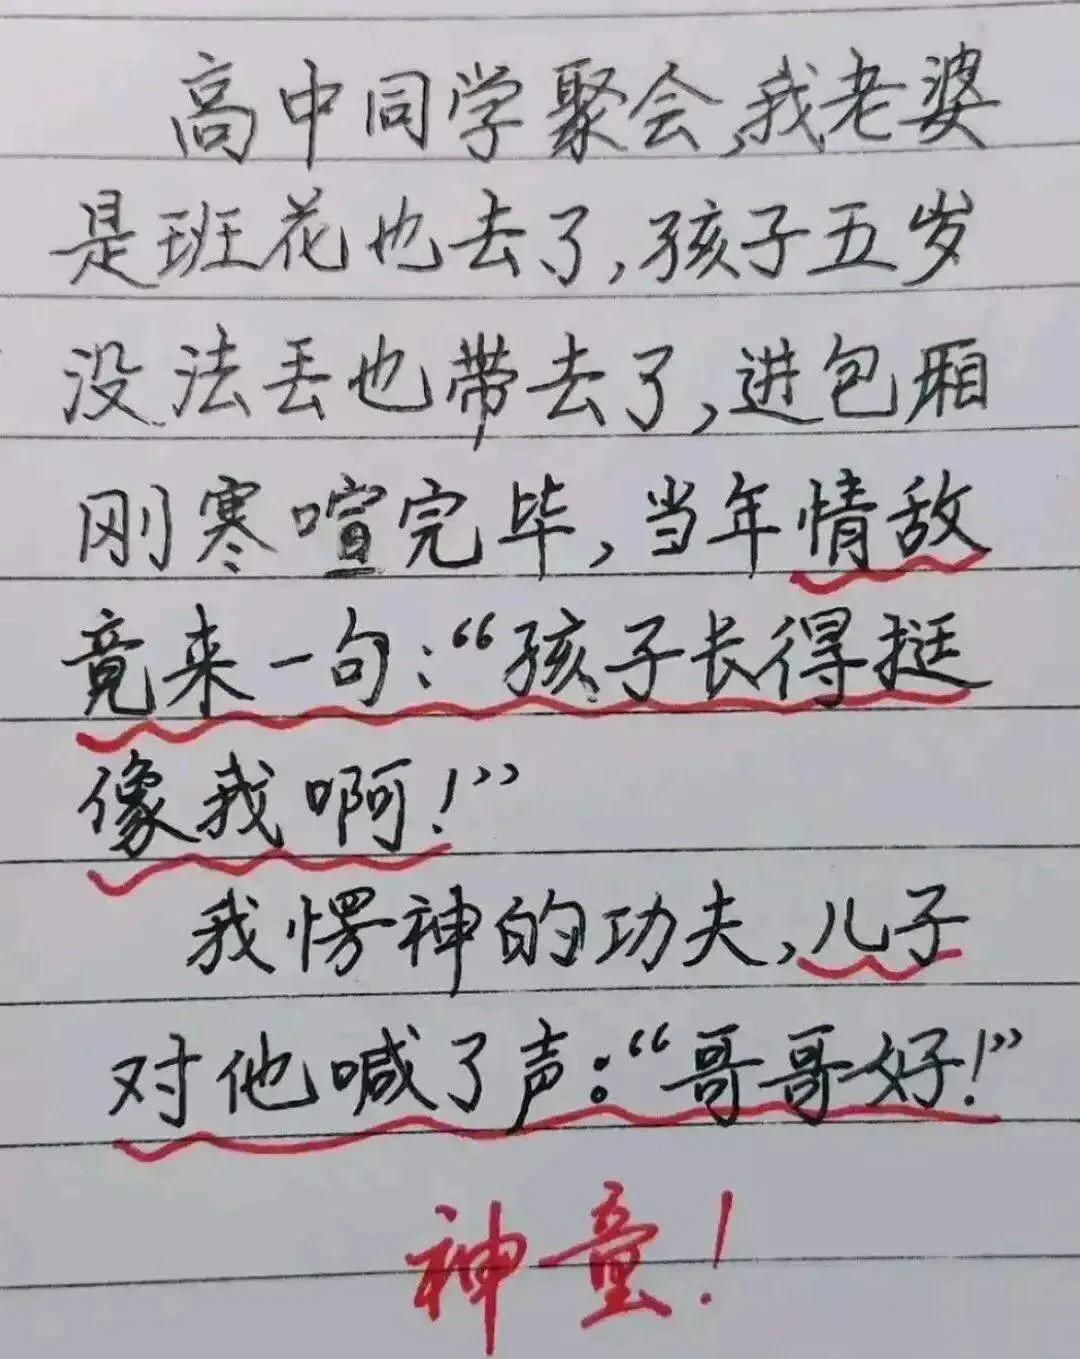 高中同学聚会,我老婆
是班花也去了,孩子五岁
没法丢也带去了,进包厢
刚寒喧完毕,当年情敌
竟来一句:“孩子长得挺
像我啊!”
我愣神的功夫,儿子
对他喊了声:“哥哥好!”
神童!